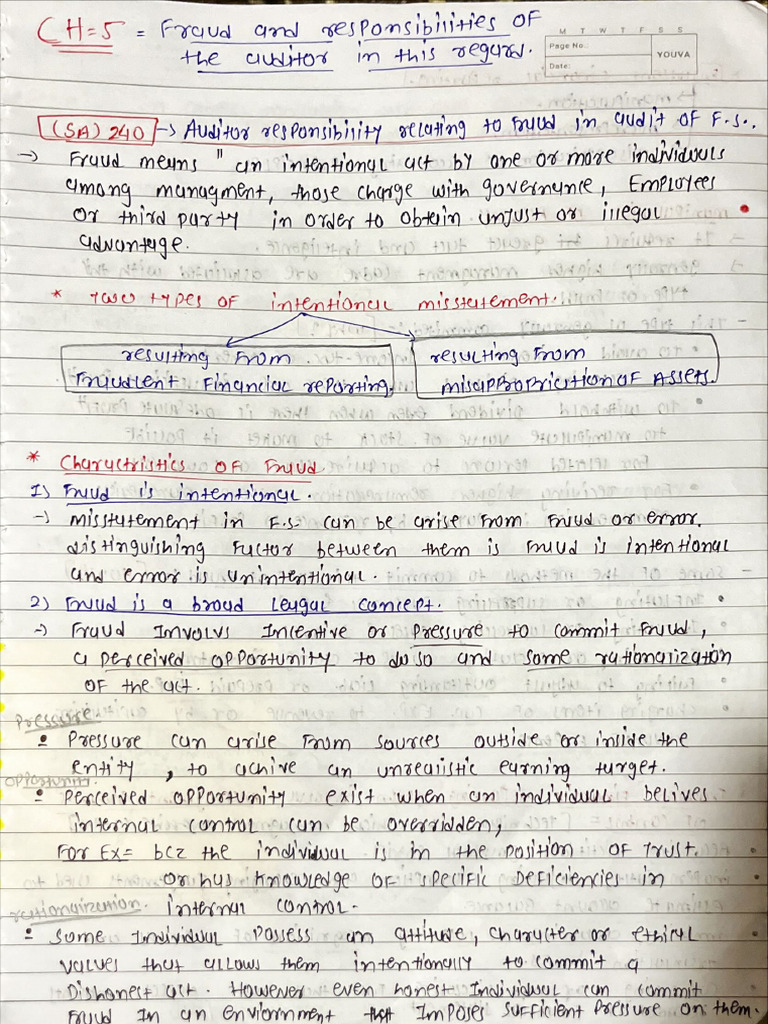 CH=5 = Fraud and responsibilities OF
the auditor in this regard.
M T W T F S S
Page No.:
Date:
YOUVA
(SA) 240 -> Auditor responsibility relating to Fraud in audit OF F.S..
-> Fraud means " an intentional act by one or more individuals
among managment, those charge with governance, Employees
or third party in order to obtain unjust or illegal
advantage.
* Two types of intentional misstatement.
resulting From
Fraudlent Financial reporting.
resulting From
misappropriation of Assets.
* Charactristics OF Fraud
1) Fraud is intentional.
-> misstatement in F.S. can be arise From Fraud or error.
distinguishing Factor between them is Fraud is intentional
and error is unintentional.
2) Fraud is a broad leygal concept.
-> Fraud Involvs Incentive or Pressure to commit Fraud,
a perceived opportunity to do so and some rationalization
OF the act.
Pressure.
• Pressure can arise From sources outside or inside the
entity, to achive an unrealistic earning target.
opportunity.
• Perceived opportunity exist when an individual belives
internal control can be overridden,
For Ex= bcz the individual is in the position OF Trust.
or has knowledge OF specific Deficiencies in
internal control.
rationalization.
• Some Individual Possess an attitude, character or ethical
values that allows them intentionally to commit a
Dishonest act. However even honest Individual can commit
Fraud In an enviornment that Imposes sufficient Pressure on them.